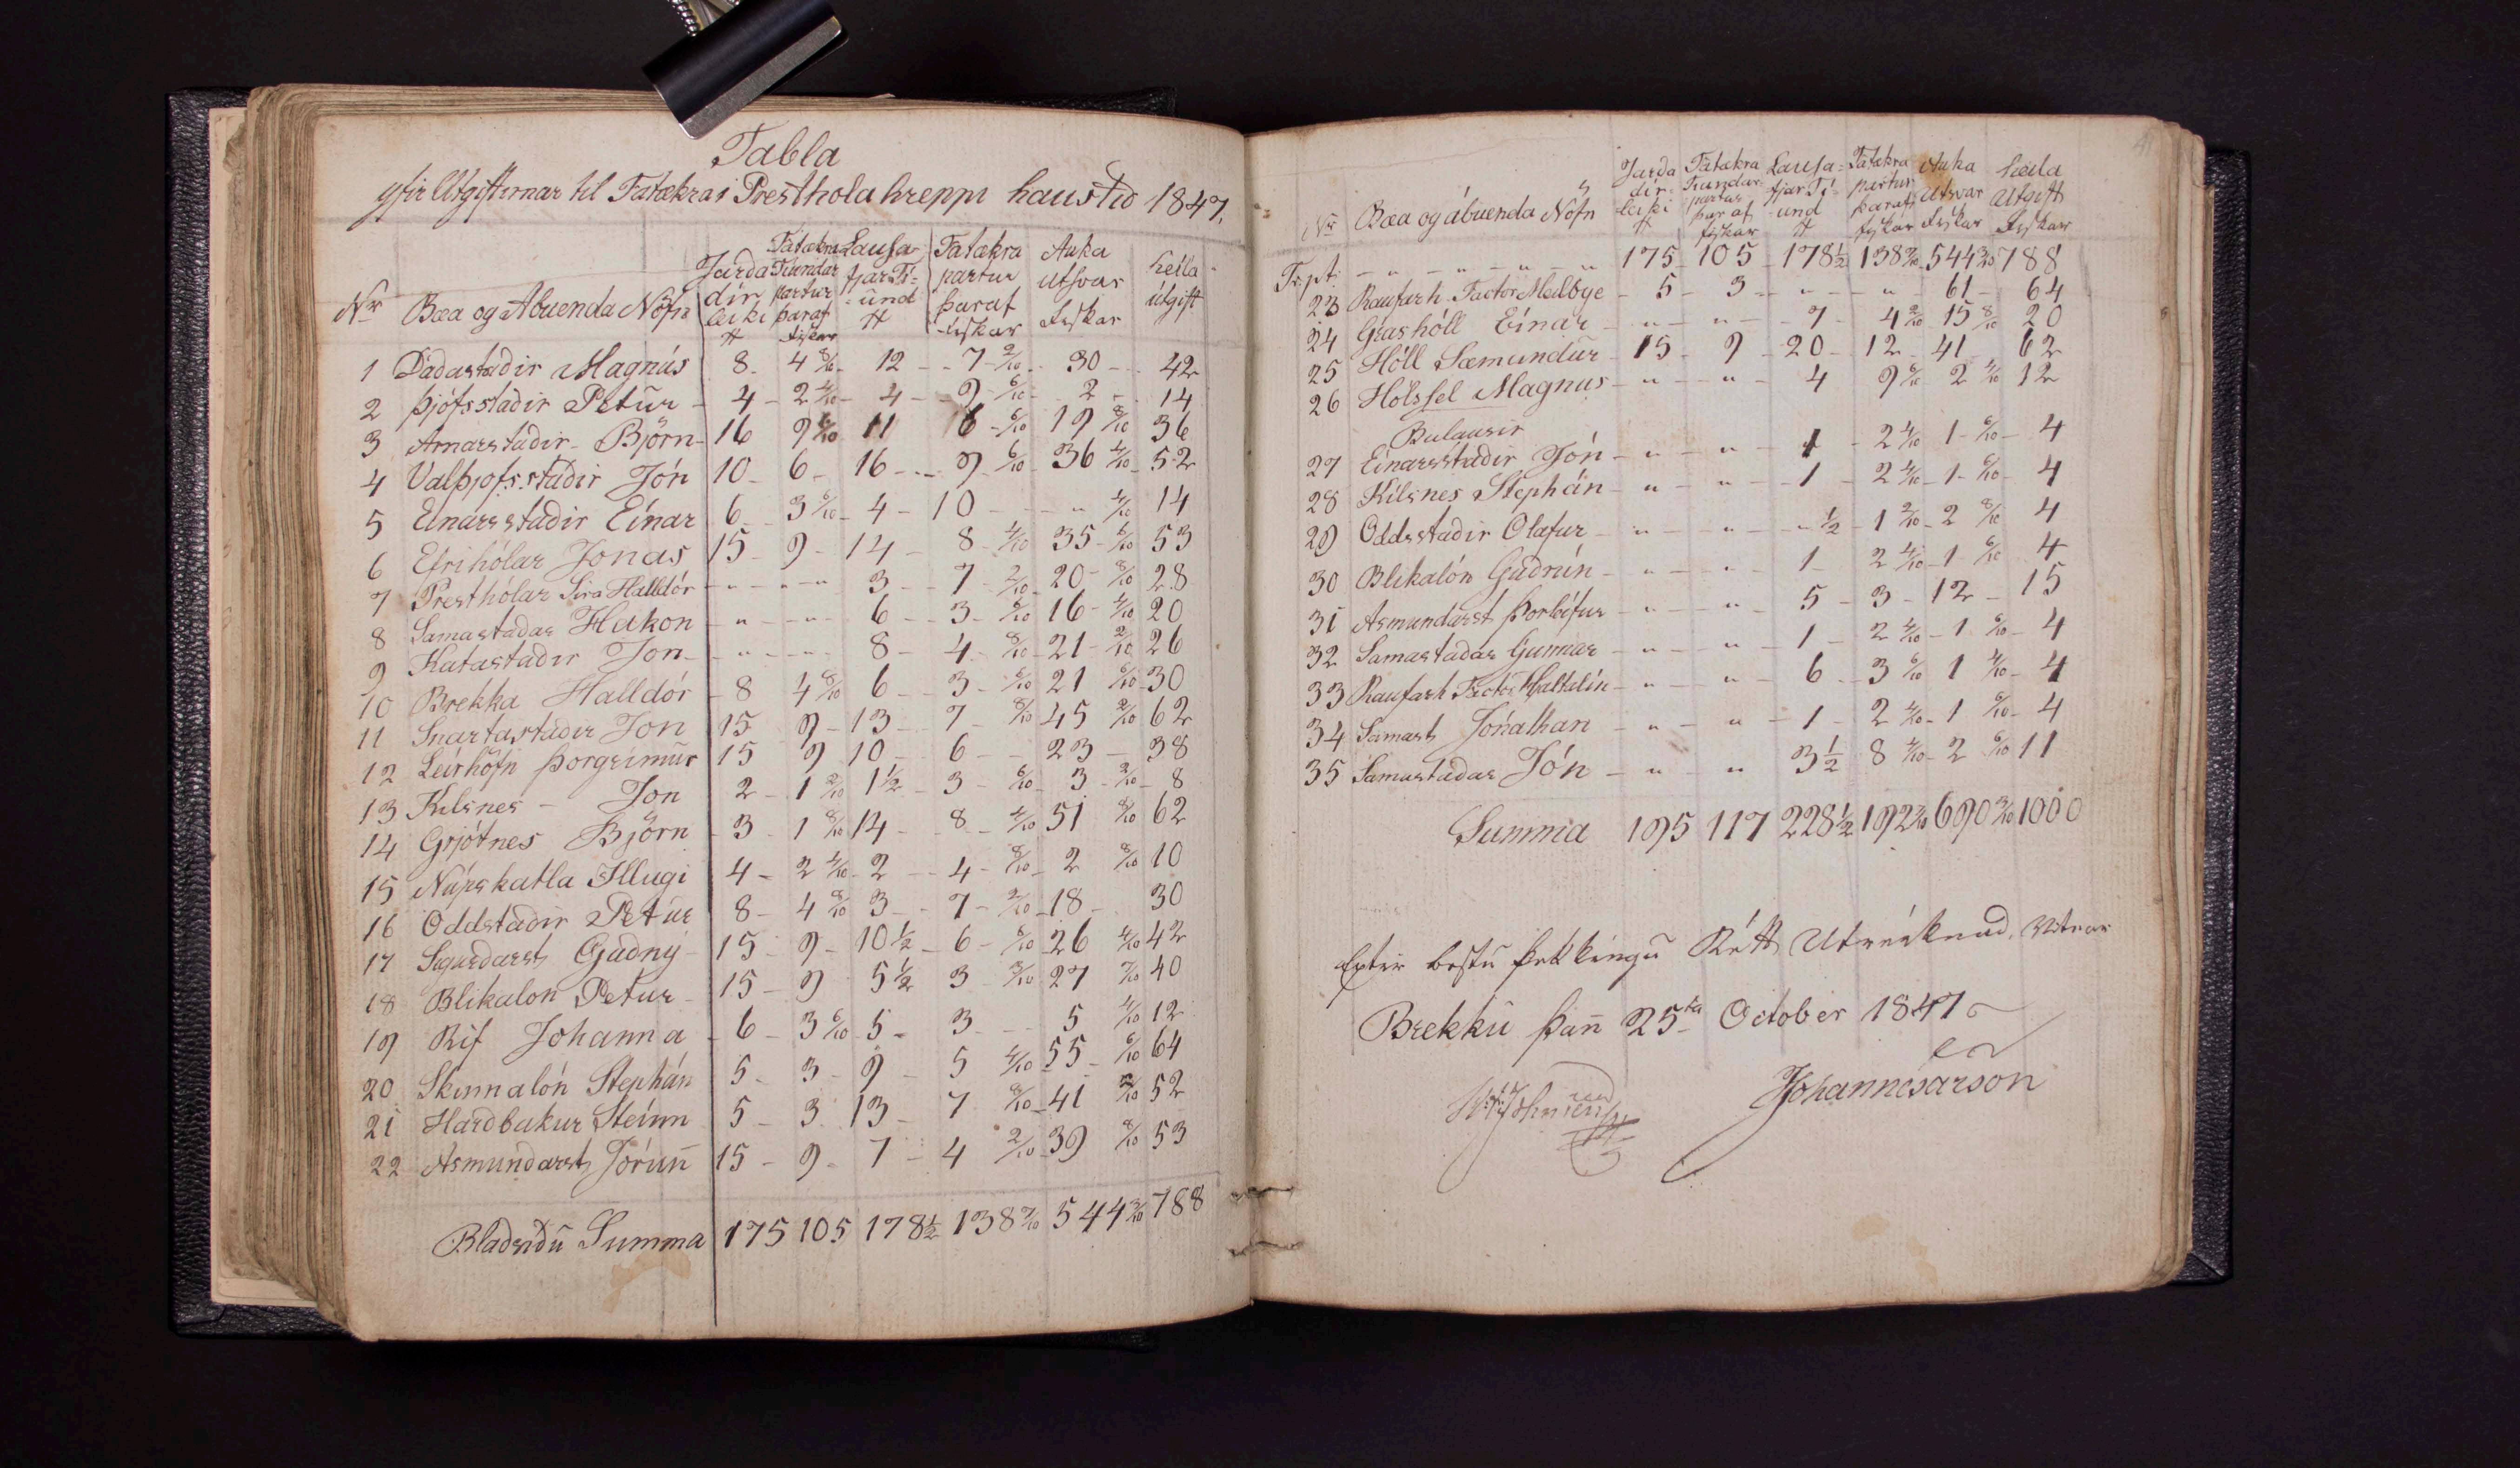 Tabla
yfir Utgiftirnar til Fatækra i Presthola hreppi haustid 1847.
Nr Bæa og Abuenda Nöfn | Jarda dír leiki # | Fátækra Tiundar partur þaraf Fiskar | Lausa fjar Tí-und # | Fatækra partur þaraf fiskar | Auka utsvar Fiskar | heila útgift
1 Dadastadir Magnús 8 - 4 8/10 - 12 - 7 2/10 - 30 - 42
2 Þjófsstadir Petur - 4 - 2 4/10 - 4 - 9 6/10 - 2 - 14
3 Arnarstadir Björn - 16 9 6/10 11 6 6/10 19 8/10 36
4 Valþjofsstadir Jón 10 - 6 - 16 - 9 6/10 - 36 4/10 - 52
5 Einarsstadir Einar 6 - 3 6/10 - 4 - 10 - " 4/10 14
6 Efrihólar Jonas 15 - 9 - 14 - 8 4/10 35 6/10 53
7 Presthólar Sira Halldór - " - " 3 - 7 2/10 20 8/10 28
8 Samastadar Hakon - " - " 6 - 3 6/10 16 4/10 20
9 Katastadir Jon - " - " 8 - 4 8/10 21 2/10 26
10 Brekka Halldór - 8 4 8/10 6 - 3 6/10 21 6/10 30
11 Snartastadir Jon 15 9 - 13 - 7 8/10 45 2/10 62
12 Leirhöfn Þorgrimur 15 9 10 - 6 - 23 - 38
13 Kilsnes - Jon 2 - 1 2/10 1 1/2 - 3 6/10 3 2/10 8
14 Grjótnes Björn - 3 - 1 8/10 14 - 8 4/10 51 8/10 62
15 Núpskatla Illugi 4 - 2 4/10 - 2 - 4 8/10 2 8/10 10
16 Oddstadir Petur 8 - 4 8/10 3 - 7 2/10 18 - 30
17 Sigurdarst Gudný - 15 - 9 - 10 1/2 - 6 6/10 26 4/10 42
18 Blikalon Petur - 15 - 9 5 1/2 3 3/10 27 7/10 40
19 Rif Johanna - 6 - 3 6/10 5 - 3 - 5 4/10 12
20 Skinnalón Stephán 5 - 3 - 9 - 5 4/10 55 6/10 64
21 Hardbakur Steinn 5 - 3 13 - 7 8/10 41 2/10 52
22 Asmundarst Jórun̄ 15 - 9 - 7 - 4 2/10 39 8/10 53
Bladsidu Summa 175 105 178 1/2 138 7/10 544 3/10 788
Nr Bæa og ábuenda Nöfn Jarda dír-leiki # Fátækra Tiundar partur þar af fiskar Lausa-fjar Tí-und # Fátækra partur þaraf fiskar Auka Utsvar Fiskar heila Utgift Fiskar
Tr.pt. - " - " - " - " 175 105 178 1/2 138 7/10 544 3/10 788
23 Raufarh. Factor Meilbye - 5 - 3 - " - " 61 - 64
24 Grashóll Einar - " - " - 7 - 4 2/10 15 8/10 20
25 Hóll Sæmundur - 15 - 9 - 20 - 12 - 41 - 62
26 Hólssel Magnus - " - " 4 9 6/10 2 4/10 12
Bulausir
27 Einarsstadir Jón - " - " - 1 - 2 4/10 1 6/10 - 4
28 Kilsnes Stephán - " - " - 1 - 2 4/10 - 1 6/10 - 4
29 Oddsstadir Olafur - " - " - " 1/2 - 1 2/10 - 2 8/10 4
30 Blikalón Gudrún - " - " 1 - 2 4/10 - 1 6/10 4
31 Asmundarst Þorleifur - " - " 5 - 3 - 12 - 15
32 Samastadar Gunnar - " - " - 1 - 2 4/10 - 1 6/10 - 4
33 Raufarh Factor Haltalín - " - " 6 - 3 6/10 1 4/10 - 4
34 Samast Jónathan - " - " - 1 - 2 4/10 - 1 6/10 - 4
35 Samastadar Jón - " - " 3 1/2 8 4/10 - 2 6/10 11
Summa 195 117 228 1/2 192 7/10 690 3/10 1000
Eptir bestu þekkingu Rétt Utreiknad, vitnar
Brekku þan̄ 25ta October 1847
Johannesarson